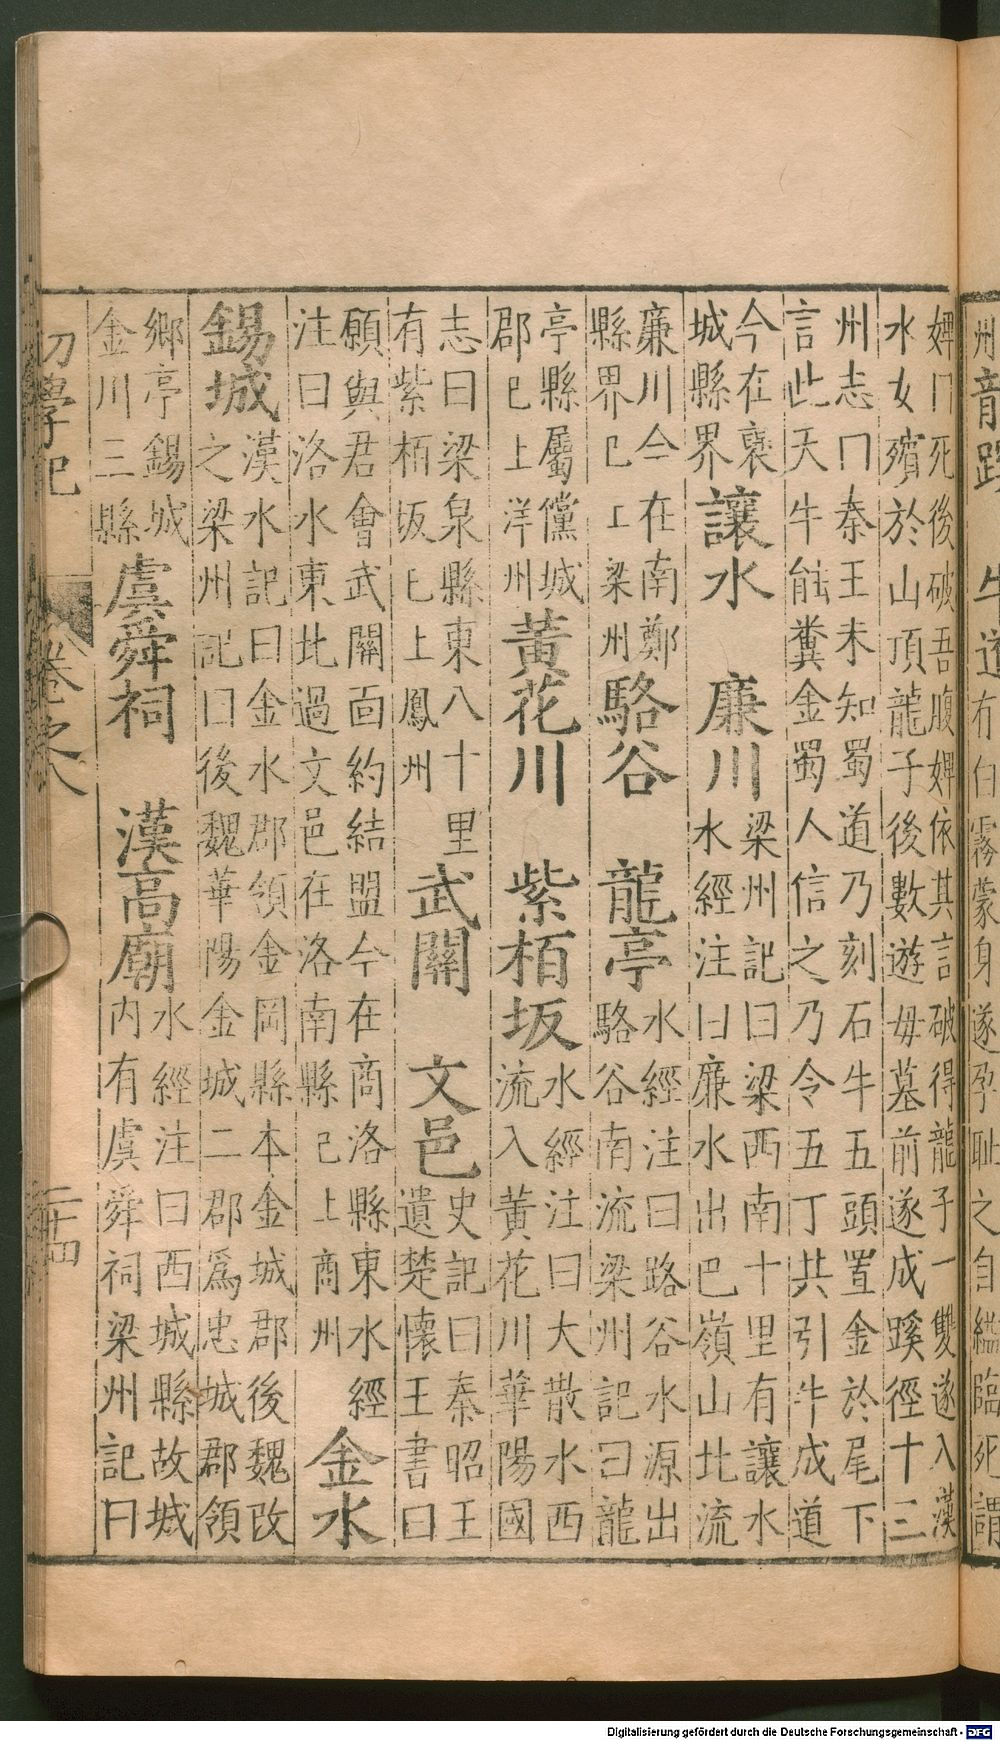 州龍蹊
牛道有白霧蒙身遂孕恥之自縊臨死謂
婢曰死後破吾腹婢依其言破得龍子一雙遂入漢
水女殯於山頂龍子後數遊毋墓前遂成蹊徑十三
州志曰秦王未知蜀道乃刻石牛五頭置金於尾下
言此天牛能糞金蜀人信之乃令五丁共引牛成道
今在襃
城縣界
讓水
廉川
梁州記曰梁西南十里有讓水
水經注曰廉水出巴嶺山北流
廉川今在南鄭
縣界已上梁州
駱谷
龍亭
水經注曰路谷水源出
駱谷南流梁州記曰龍
亭縣屬儻城
郡已上洋州
黃花川
紫栢坂
水經注曰大散水西
流入黃花川華陽國
志曰梁泉縣東八十里
有紫栢坂已上鳳州
武關
文邑
史記曰秦昭王
遺楚懷王書曰
願與君會武關面約結盟今在商洛縣東水經
注曰洛水東北過文邑在洛南縣已上商州
金水
錫城
漢水記曰金水郡領金岡縣本金城郡後魏改
之梁州記曰後魏華陽金城二郡爲忠城郡領
鄉亭錫城
金川三縣
虞舜祠
漢高廟
水經注曰西城縣故城
內有虞舜祠梁州記曰
初學記
卷之八
二十四
Digitalisierung gefördert durch die Deutsche Forschungsgemeinschaft - DFG